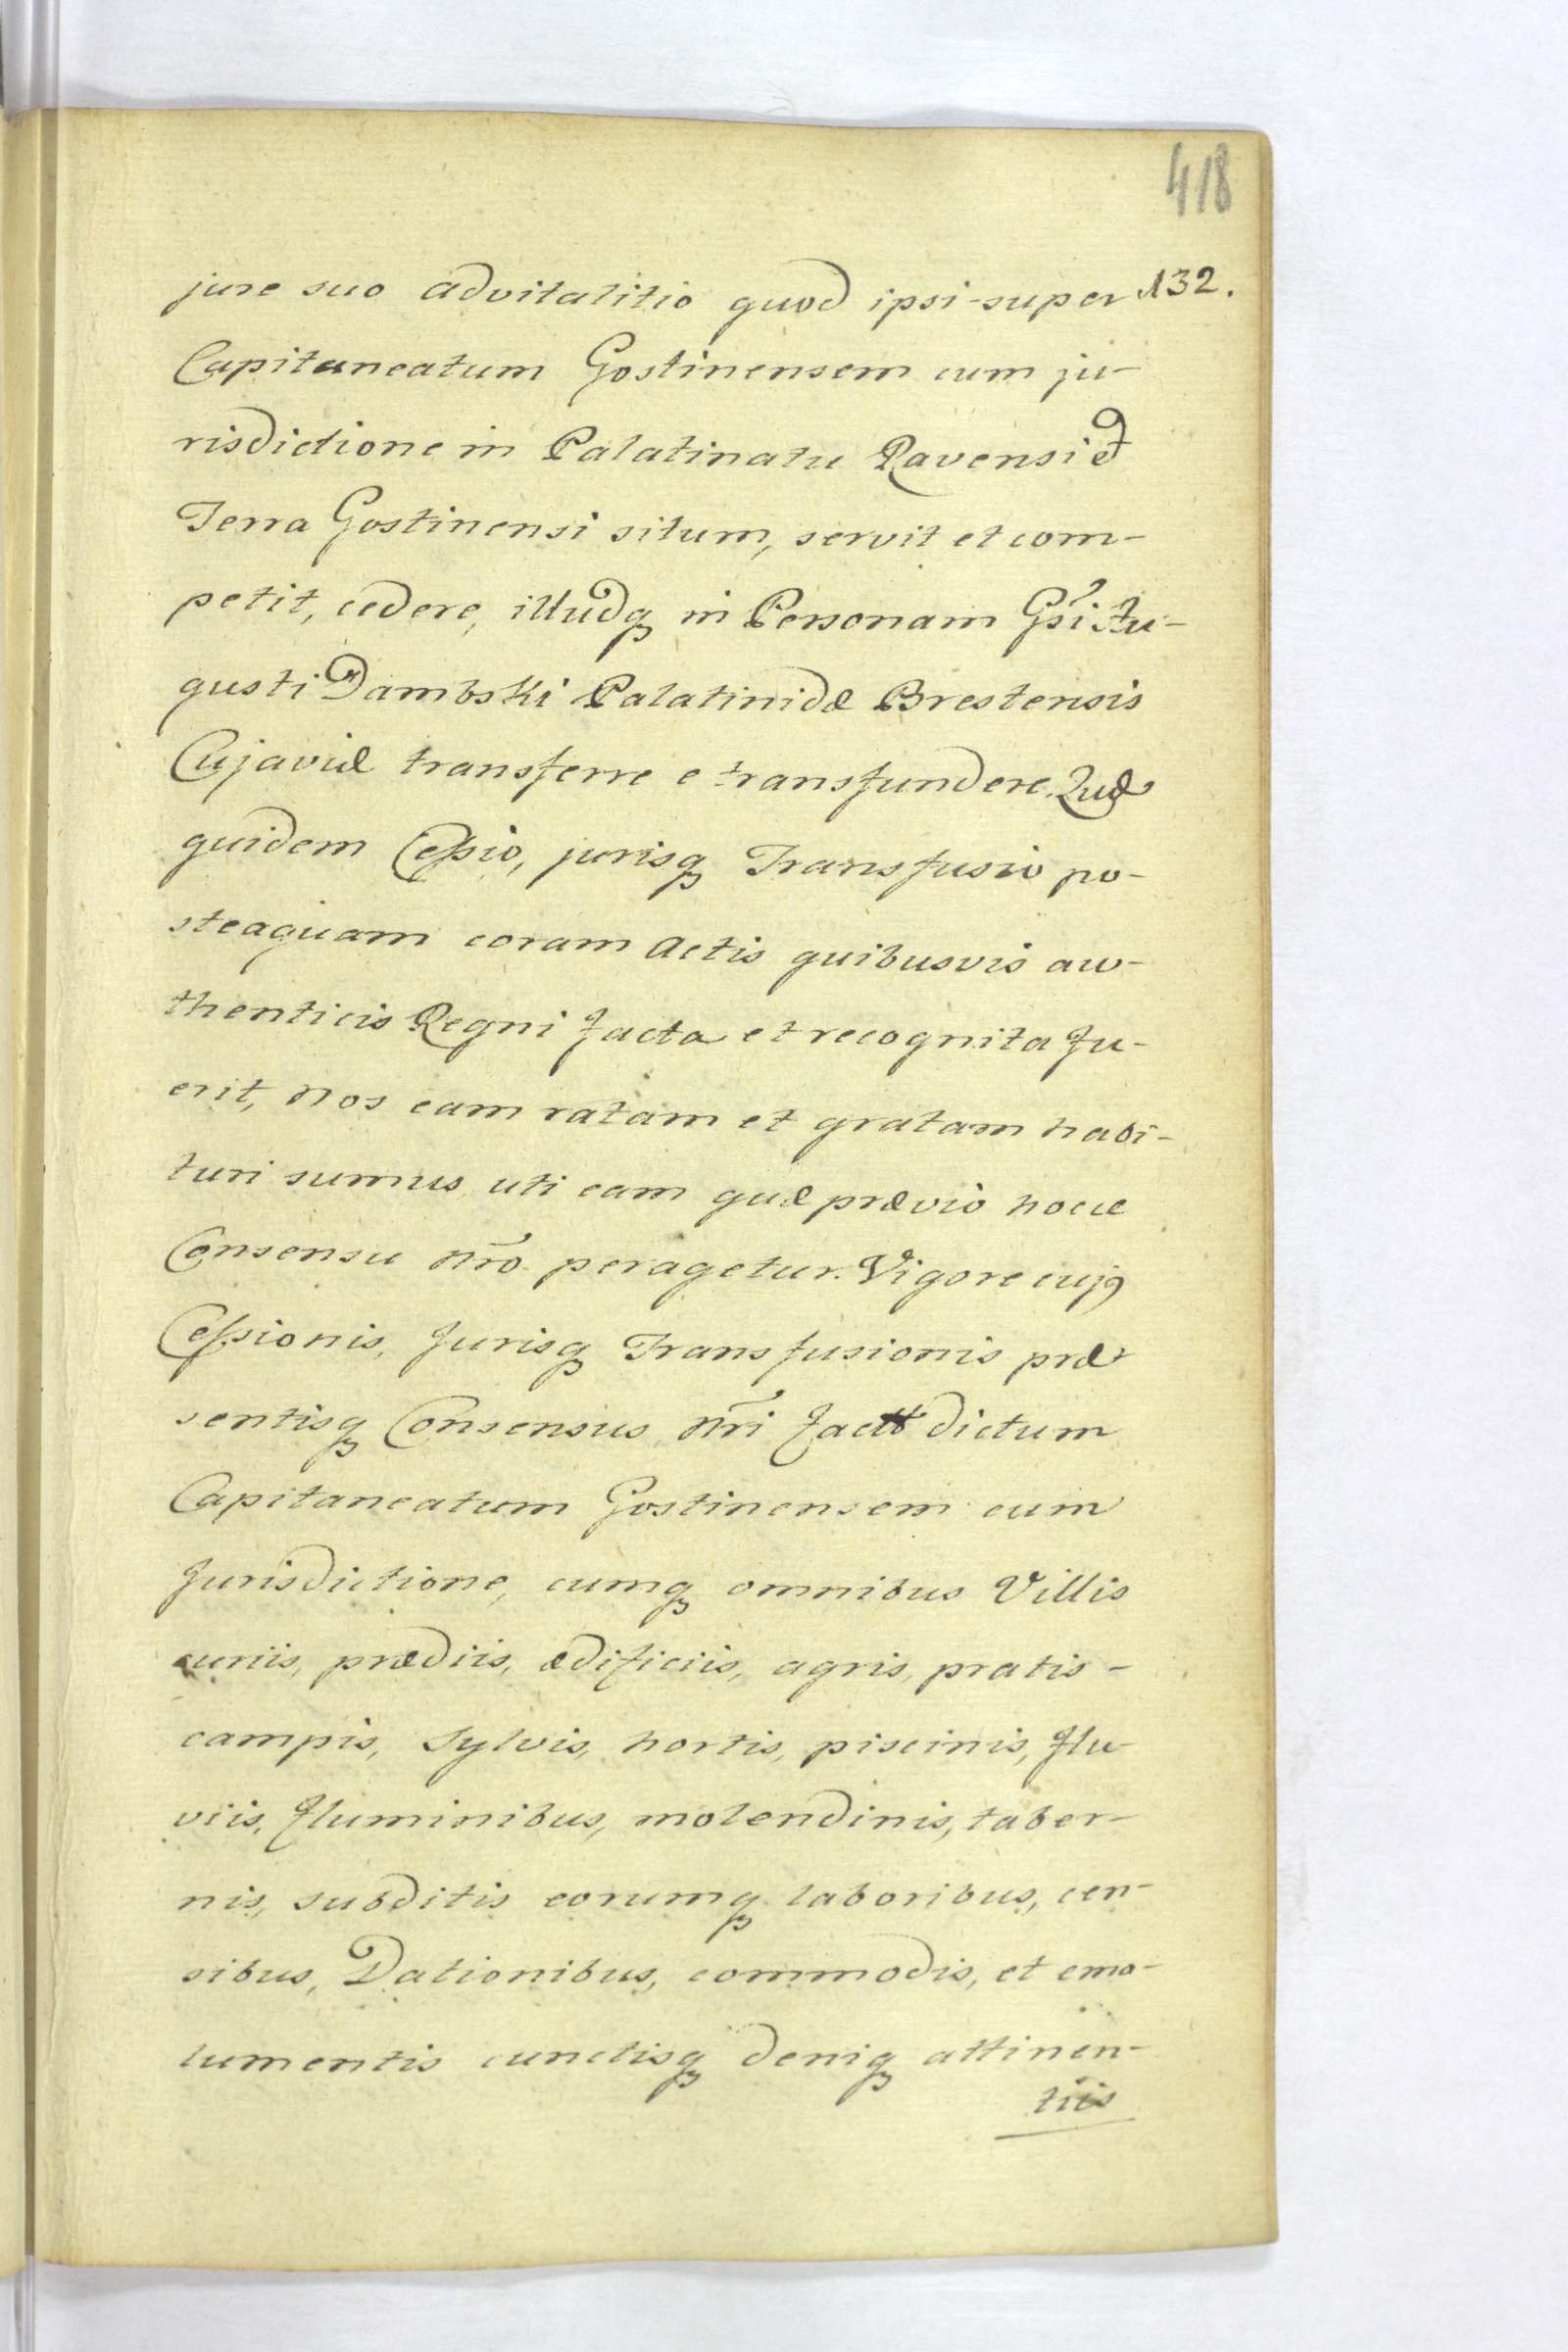 418
jure suo advitalitio quod ipsi super 132.
Capitaneatum Gostinensem cum ju-
risdictione in Palatinatu Ravensi et
Terra Gostinensi situm, servit et com-
petit, cedere, illudq in Personam Gsi Au-
gusti Dambski Palatinidæ Brestensis
Cujaviæ transferre e transfundere. Quæ
quidem Cessio, jurisq Transfusio po-
steaquam coram Actis quibusvis au-
thenticis Regni facta et recognita fu-
erit, Nos eam ratam et gratam habi-
turi sumus uti eam quæ prævio hocce
Consensu Nro peragetur. Vigore cujq
Cessionis, Jurisq Transfusionis præ
sentisq Consensus Nri dictum
Capitaneatum Gostinensem cum
Jurisdictione, cumq omnibus Villis
curiis, prædiis, ædificiis, agris, pratis -
campis, Sylvis, hortis, piscinis, flu-
viis, fluminibus, molendinis, taber-
nis, subditis eorumq laboribus, cen-
sibus, Dationibus, commodis, et emo-
lumentis cunctisq deniq attinen-
tiis